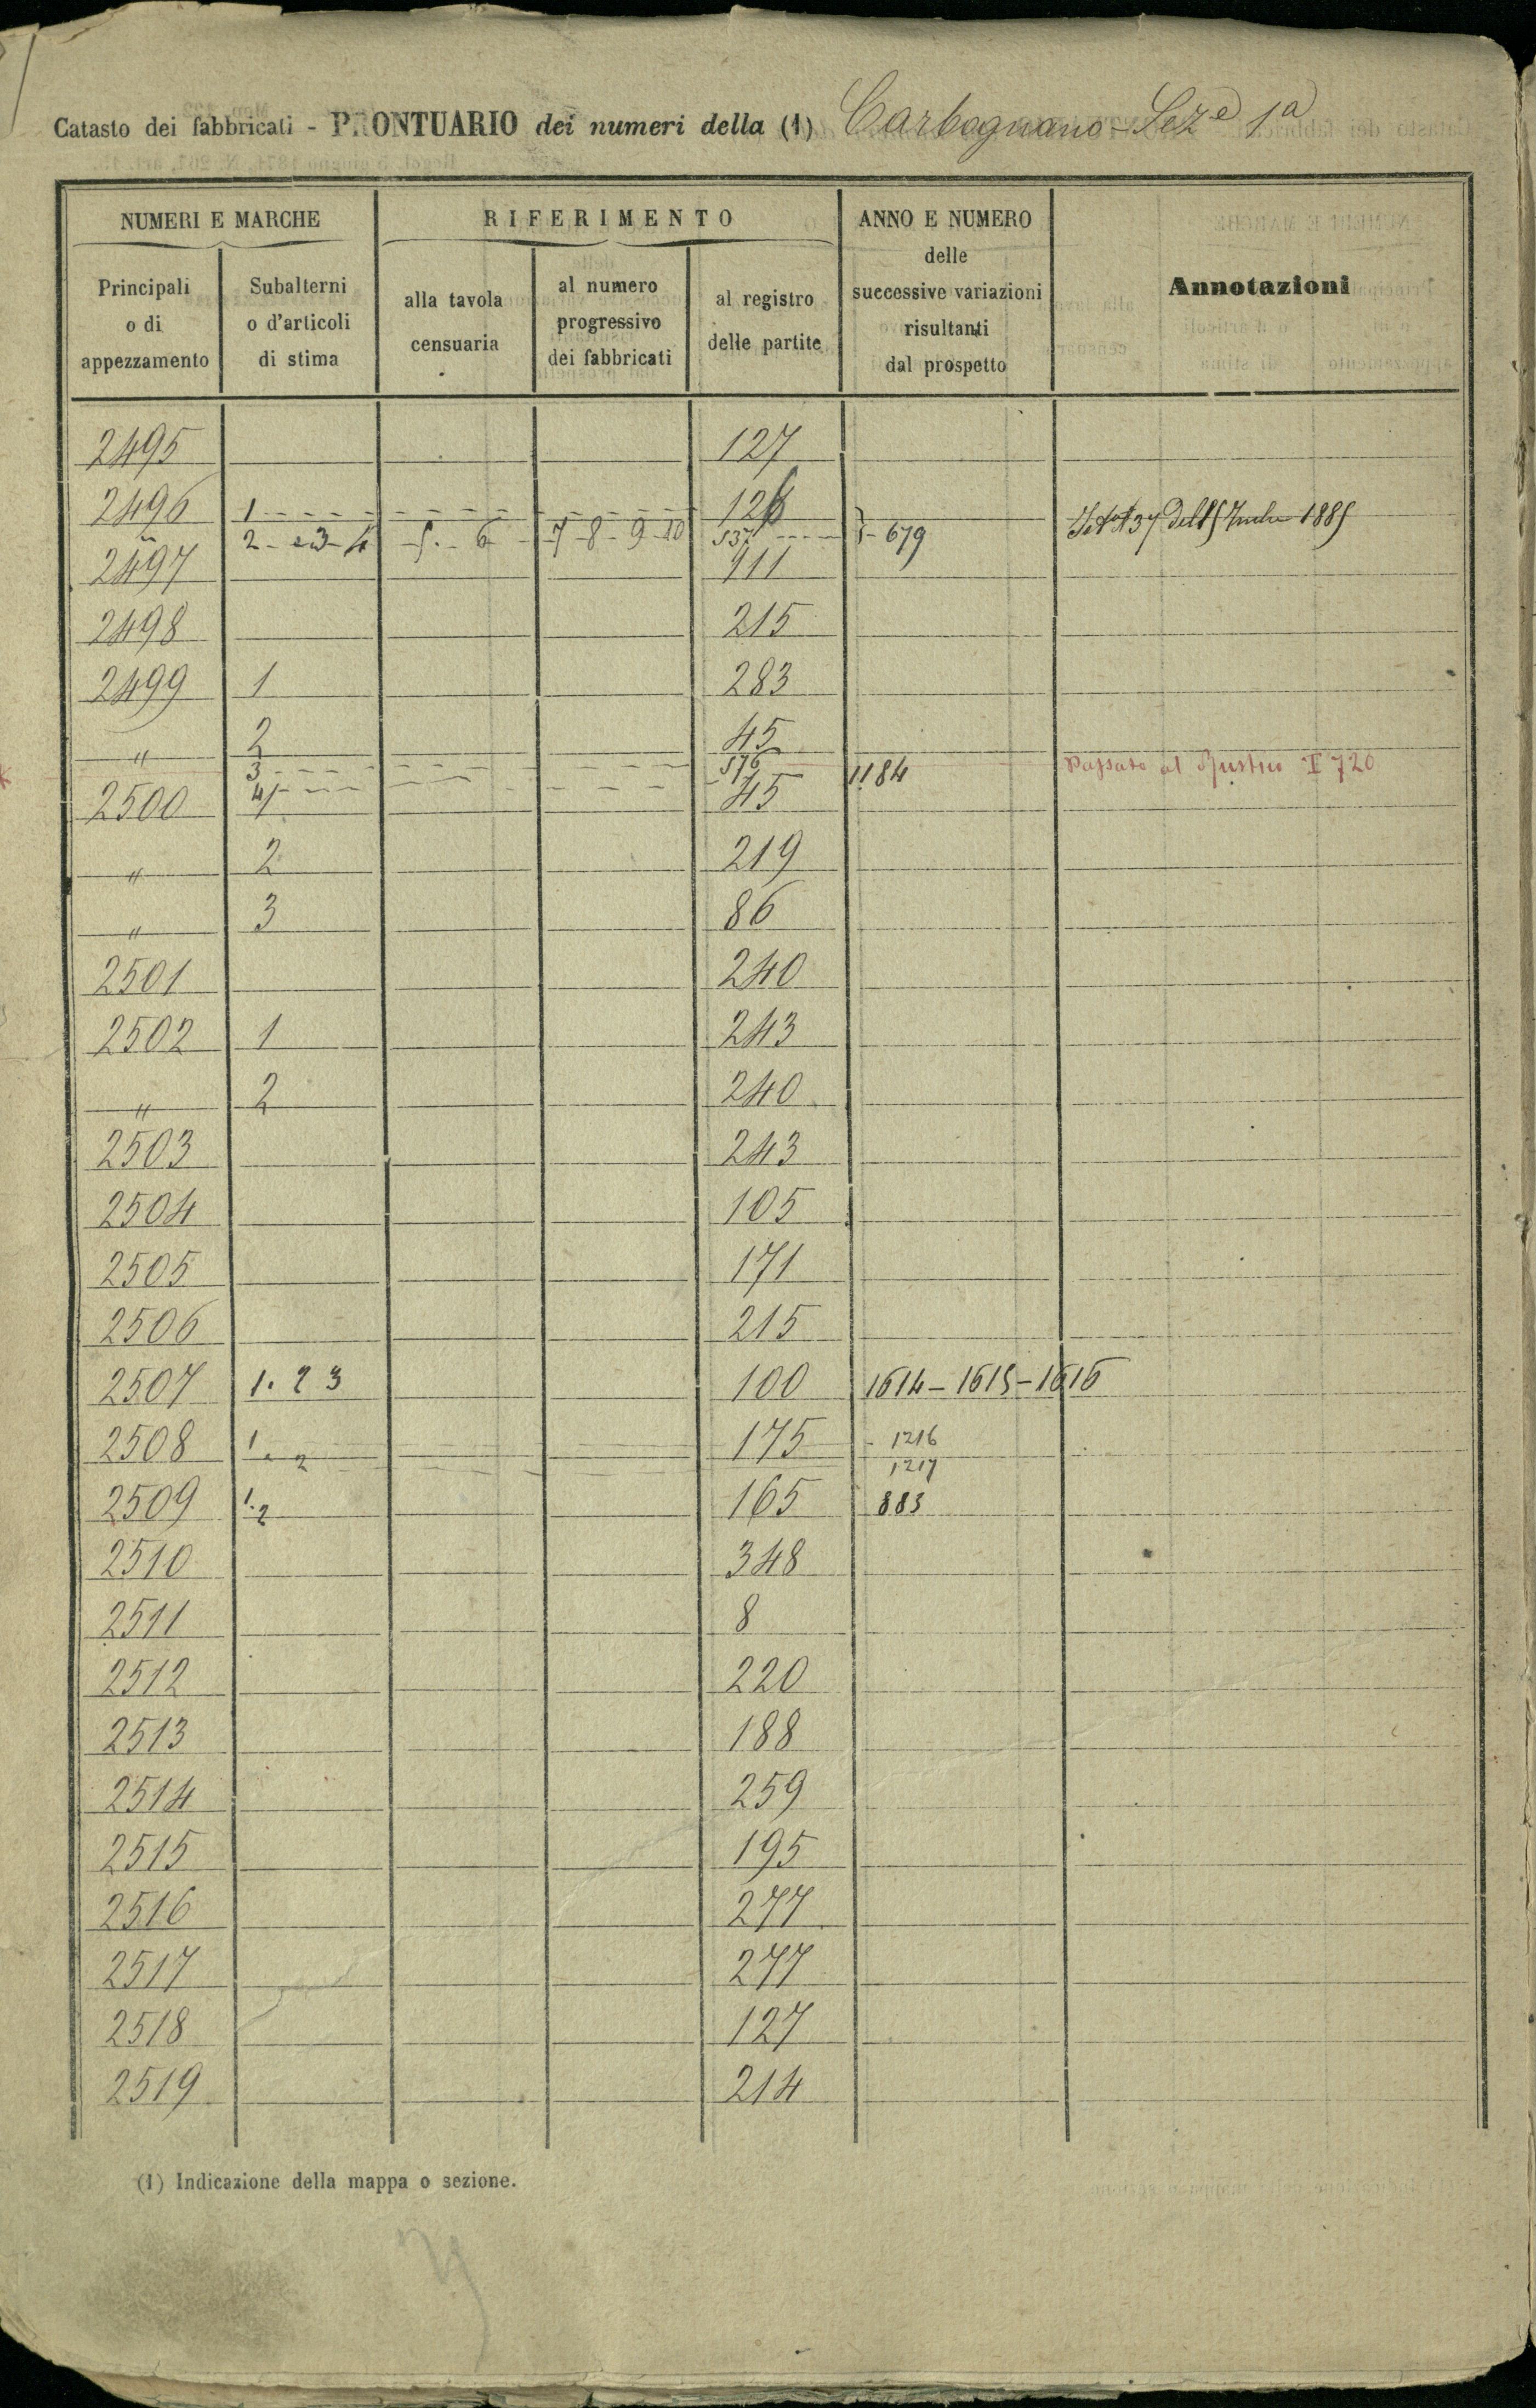 Catasto dei fabbricati - PRONTUARIO dei numeri della (1) Carbognano - Sez.e 1a
NUMERI E MARCHE RIFERIMENTO ANNO E NUMERO delle successive variazioni risultanti dal prospetto Annotazioni
Principali o di appezzamento Subalterni o d'articoli di stima alla tavola censuaria al numero progressivo dei fabbricati al registro delle partite
2495 127
2496 1 126
" 2 - 3 - 4 5 - 6 7 - 8 - 9 - 10 537 679 1885
2497 911
2498 215
2499 1 283
" 2 45
3 576 1184 Passato al Rustico I 720
4
2500 1 45
" 2 219
" 3 86
2501 240
2502 1 243
" 2 240
2503 243
2504 105
2505 171
2506 215
2507 1. 2 3 100 1614 - 1615 - 1616
2508 1 . 2 175 1216
1217
2509 1. 2 165 883
2510 348
2511 8
2512 220
2513 188
2514 259
2515 195
2516 277
2517 277
2518 127
2519 214
(1) Indicazione della mappa o sezione.